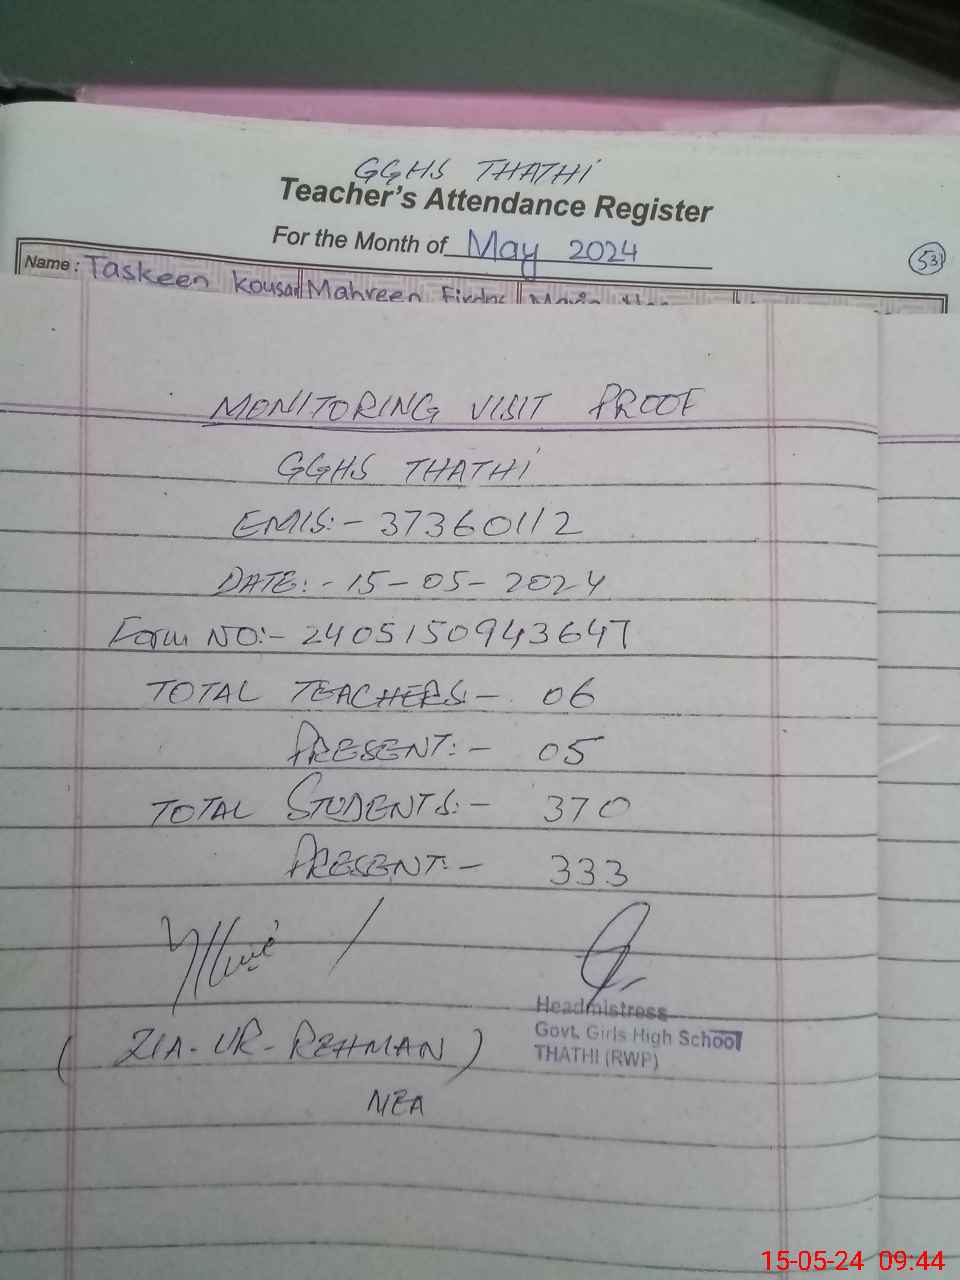 GGHS THATHI
Teacher's Attendance Register
For the Month of May 2024
53
Name : Taskeen Kousar Mahreen
MONITORING VISIT PROOF
GGHS THATHI
EMIS:- 37360112
DATE:- 15-05-2024
Form NO:- 2405150943647
TOTAL TEACHERS:- 06
PRESENT:- 05
TOTAL STUDENTS:- 370
PRESENT:- 333
Headmistress
Govt. Girls High School
THATHI (RWP)
( ZIA-UR-REHMAN )
MEA
15-05-24 09:44